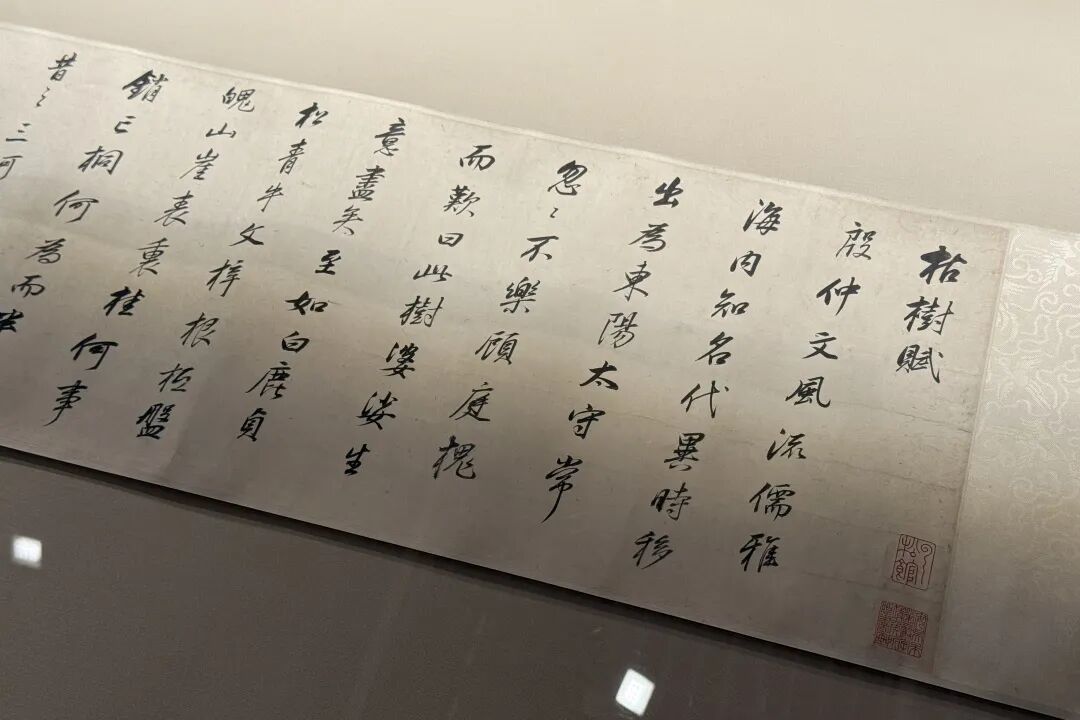 枯樹賦
殷仲文風流儒雅
海内知名代異時移
出為東陽太守常
忽〻不樂顧庭槐
而歎曰此樹婆娑生
意盡矣至如白鹿貞
松青牛文梓根柢盤
魄山崖表裏桂何事
銷亡桐何為而半
昔之三河